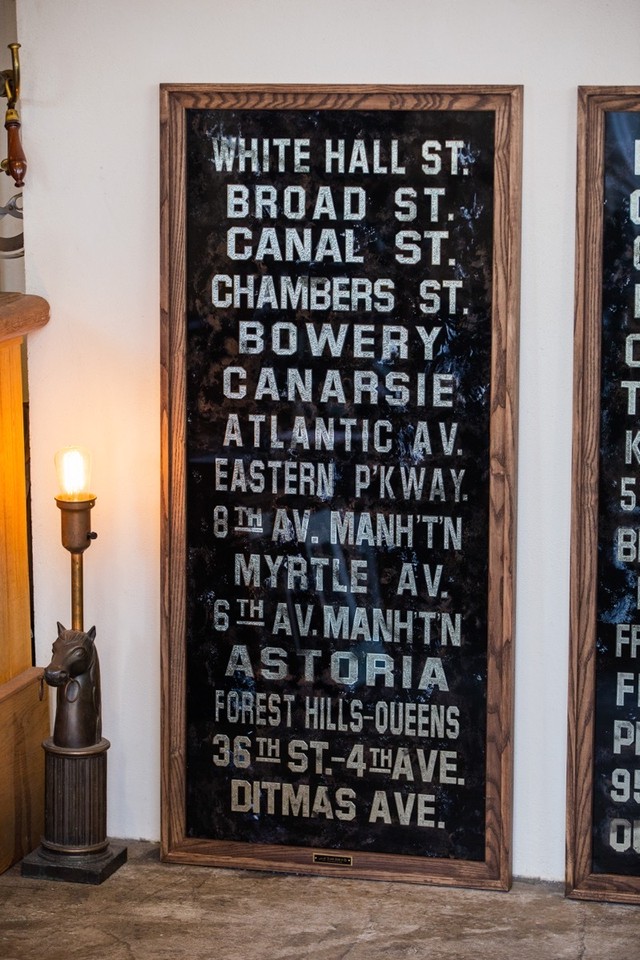 WHITE HALL ST.
BROAD ST.
CANAL ST.
CHAMBERS ST.
BOWERY
CANARSIE
ATLANTIC AV.
EASTERN P'KWAY.
8TH AV. MANH'T'N
MYRTLE AV.
6TH AV. MANH'T'N
ASTORIA
FOREST HILLS-QUEENS
36TH ST.-4TH AVE.
DITMAS AVE.